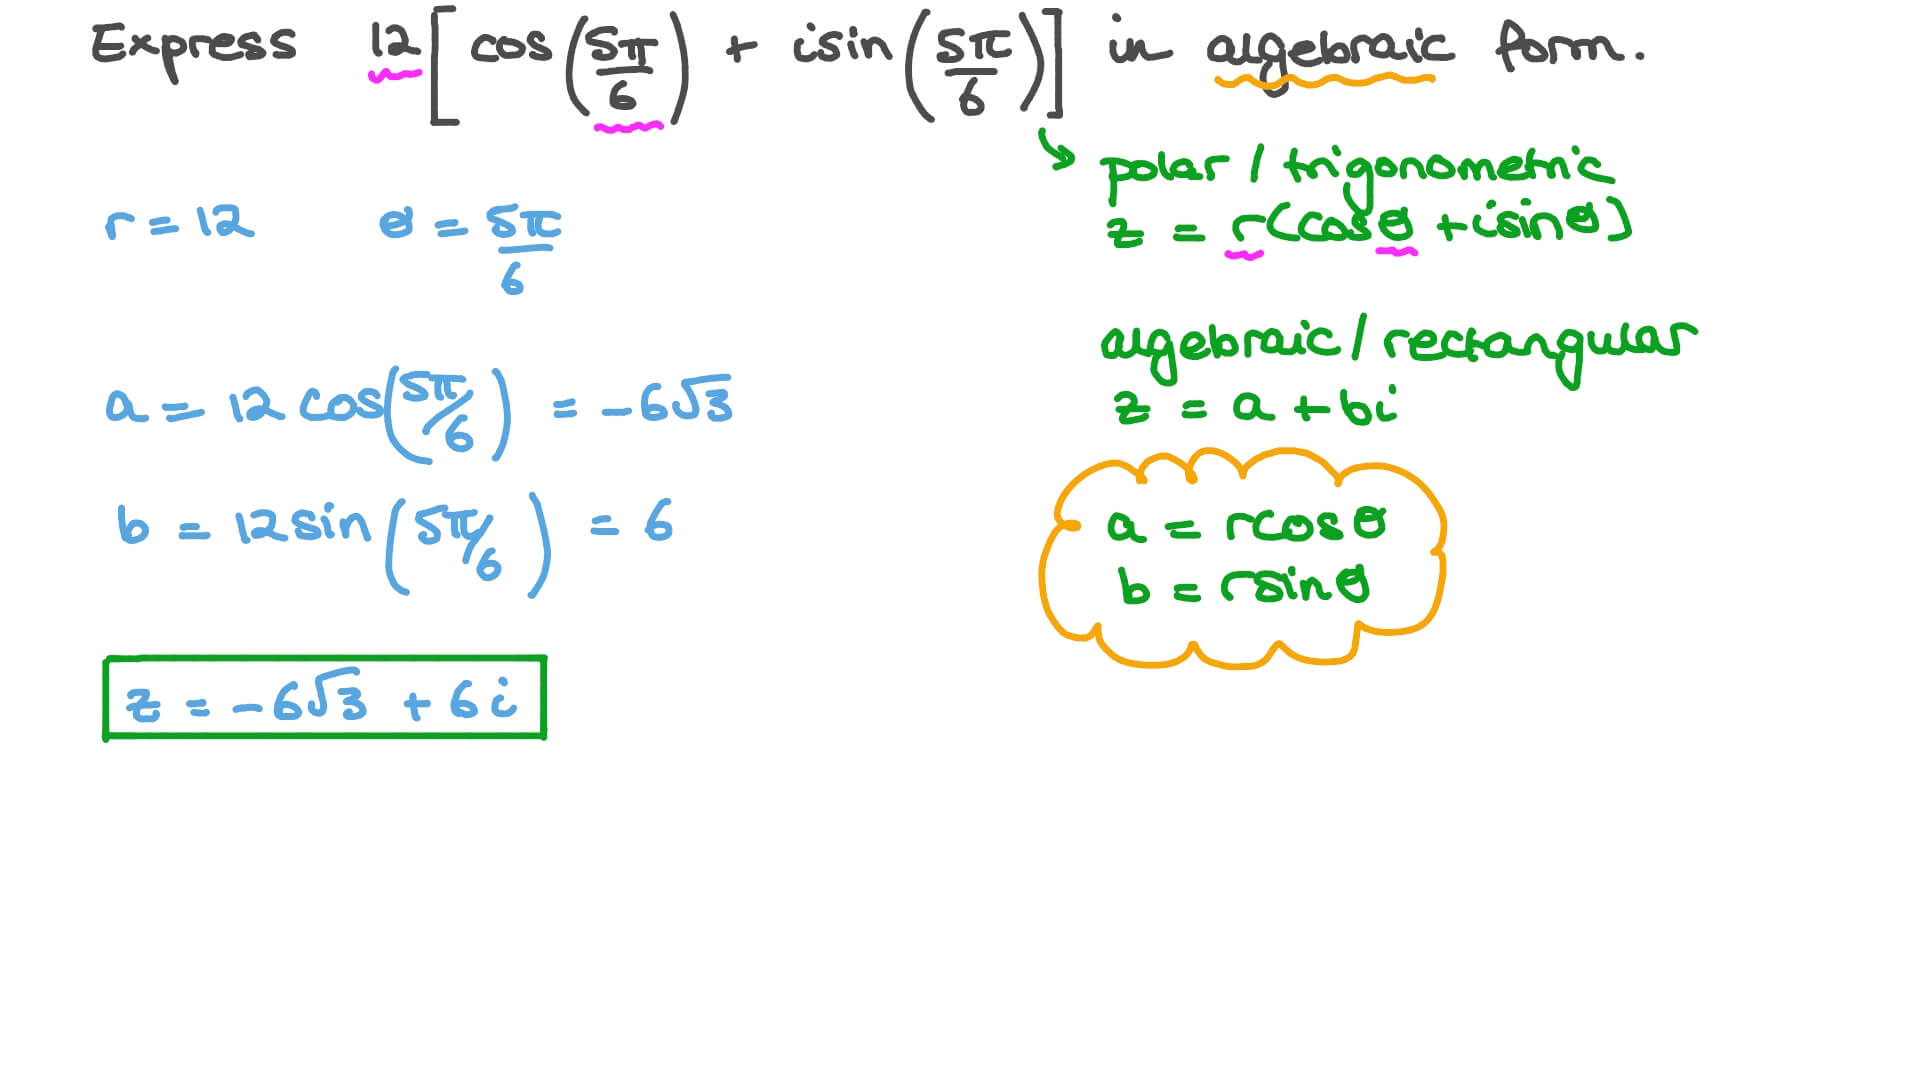 Express 12[cos(5π/6) + isin(5π/6)] in algebraic form.
polar / trigonometric
z = r(cosθ + isinθ)
r = 12 θ = 5π/6
algebraic / rectangular
z = a + bi
a = 12 cos(5π/6) = -6√3
b = 12 sin(5π/6) = 6
a = rcosθ
b = rsinθ
z = -6√3 + 6i